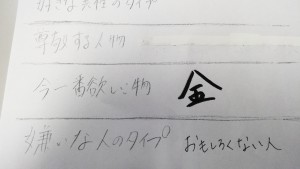 好きな異性のタイプ
尊敬する人物
今一番欲しい物 金
嫌いな人のタイプ おもしろくない人